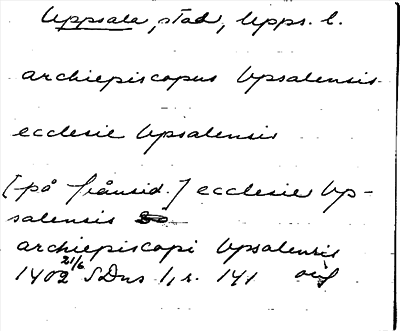 Uppsala, stad, Upps. l.
archiepiscopus Vpsalensis
ecclesie Vpsalensis
[på frånsid.] ecclesie Vp-
salensis
archiepiscopi Vpsalensis
1402 21/6 SDns 1, s. 141 orig